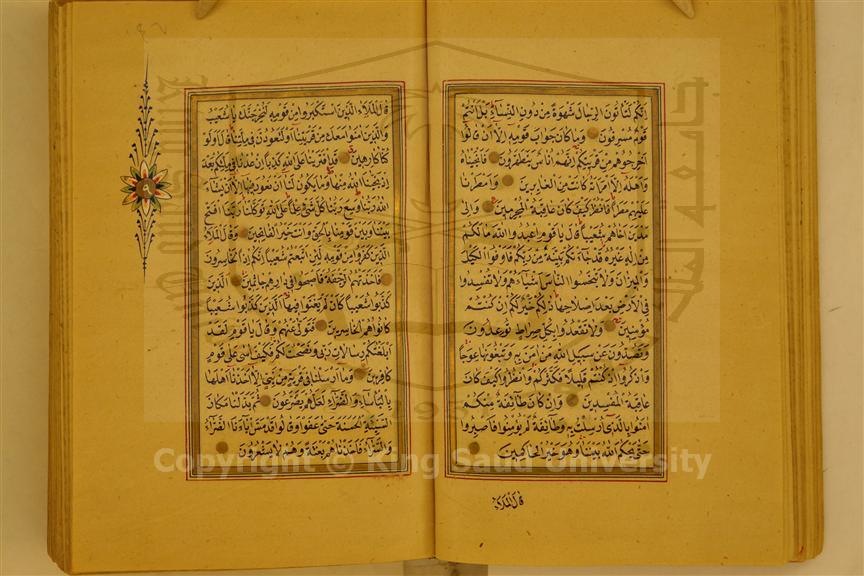 انكم لتاتون الرجال شهوة من دون النساء بل انتم
قوم مسرفون وما كان جواب قومه الا ان قالوا
اخرجوهم من قريتكم انهم اناس يتطهرون فانجيناه
واهله الا امراته كانت من الغابرين وامطرنا
عليهم مطرا فانظر كيف كان عاقبة المجرمين والى
مدين اخاهم شعيبا قال يا قوم اعبدوا الله ما لكم
من اله غيره قد جاءتكم بينة من ربكم فاوفوا الكيل
والميزان ولا تبخسوا الناس اشياءهم ولا تفسدوا
في الارض بعد اصلاحها ذلكم خير لكم ان كنتم
مؤمنين ولا تقعدوا بكل صراط توعدون
وتصدون عن سبيل الله من امن به وتبغونها عوجا
واذكروا اذ كنتم قليلا فكثركم وانظروا كيف كان
عاقبة المفسدين وان كان طائفة منكم
امنوا بالذي ارسلت به وطائفة لم يؤمنوا فاصبروا
حتى يحكم الله بيننا وهو خير الحاكمين
قال الملا
قال الملاء الذين استكبروا من قومه لنخرجنك يا شعيب
والذين امنوا معك من قريتنا او لتعودن في ملتنا قال اولو
كنا كارهين قد افترينا على الله كذبا ان عدنا في ملتكم بعد
اذ نجينا الله منها وما يكون لنا ان نعود فيها الا ان يشاء
الله ربنا وسع ربنا كل شيء علما على الله توكلنا ربنا افتح
بيننا وبين قومنا بالحق وانت خير الفاتحين وقال الملاء
الذين كفروا من قومه لئن اتبعتم شعيبا انكم اذا لخاسرون
فاخذتهم الرجفة فاصبحوا في دارهم جاثمين الذين
كذبوا شعيبا كان لم يغنوا فيها الذين كذبوا شعيبا
كانوا هم الخاسرين فتولى عنهم وقال يا قوم لقد
ابلغتكم رسالات ربي ونصحت لكم فكيف اسى على قوم
كافرين وما ارسلنا في قرية من نبي الا اخذنا اهلها
بالباساء والضراء لعلهم يضرعون ثم بدلنا مكان
السيئة الحسنة حتى عفوا وقالوا قد مس اباءنا الضراء
والسراء فاخذناهم بغتة وهم لا يشعرون
Copyright © King Saud University